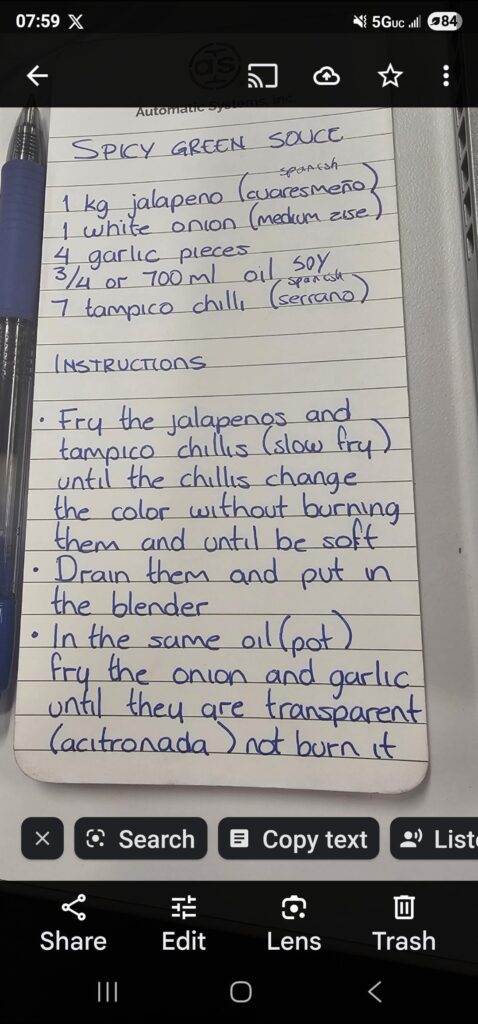 07:59 X 5GUC 84
as
Automatic Systems, Inc
SPICY GREEN SOUCE
spanish
1 kg jalapeno (cuaresmeño)
1 white onion (medium zise)
4 garlic pieces
3/4 or 700 ml oil SOY
spanish
7 tampico chilli (serrano)
INSTRUCTIONS
• Fry the jalapenos and
tampico chillis (slow fry)
until the chillis change
the color without burning
them and until be soft
• Drain them and put in
the blender
• In the same oil (pot)
fry the onion and garlic
until they are transparent
(acitronada) not burn it
Search Copy text List
Share Edit Lens Trash